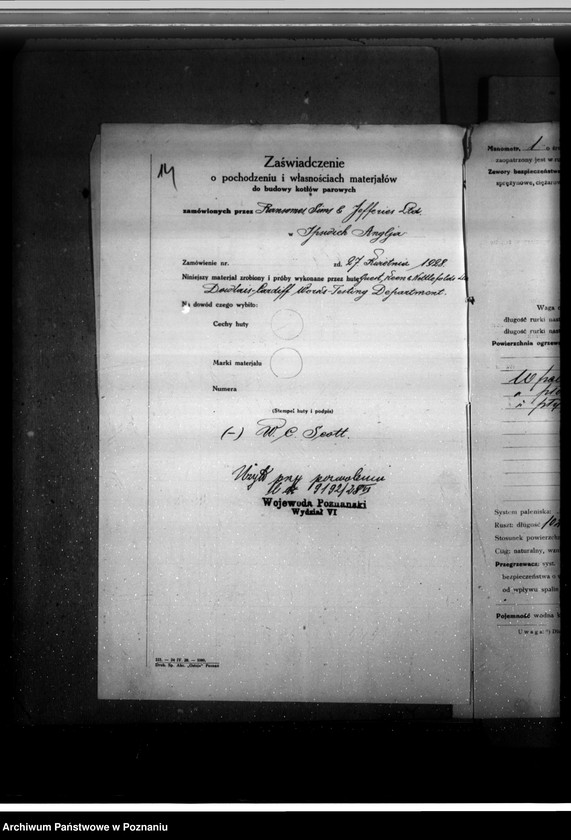 14
Zaświadczenie
o pochodzeniu i własnościach materjałów
do budowy kotłów parowych
zamówionych przez Ransomes Sims & Jefferies Ltd.
w Ipswich Anglja
Zamówienie nr. zd. 27 Kwietnia 1928
Niniejszy materjał zrobiony i próby wykonane przez hutę Guest, Keen & Nettlefolds Ltd
Dowlais-Cardiff Works-Testing Department.
Na dowód czego wybito:
Cechy huty
Marki materjału
Numera
(Stempel huty i podpis)
(-) W. C. Scott.
przy pozwoleniu
9192/28
Wojewoda Poznański
Wydział VI
Druk. Sp. Akc. „Ostoja” Poznań
Manometr, 1
zaopatrzony jest w
Zawory bezpieczeństwa
sprężynowe, ciężar
Waga
długość rurki
długość rurki
Powierzchnia ogrzew
System paleniska:
Ruszt: długość
Stosunek powierzchn
Ciąg: naturalny,
Przegrzewacz: syst.
bezpieczeństwa
od wpływu spalin
Pojemność wodna
Uwaga:
Archiwum Państwowe w Poznaniu